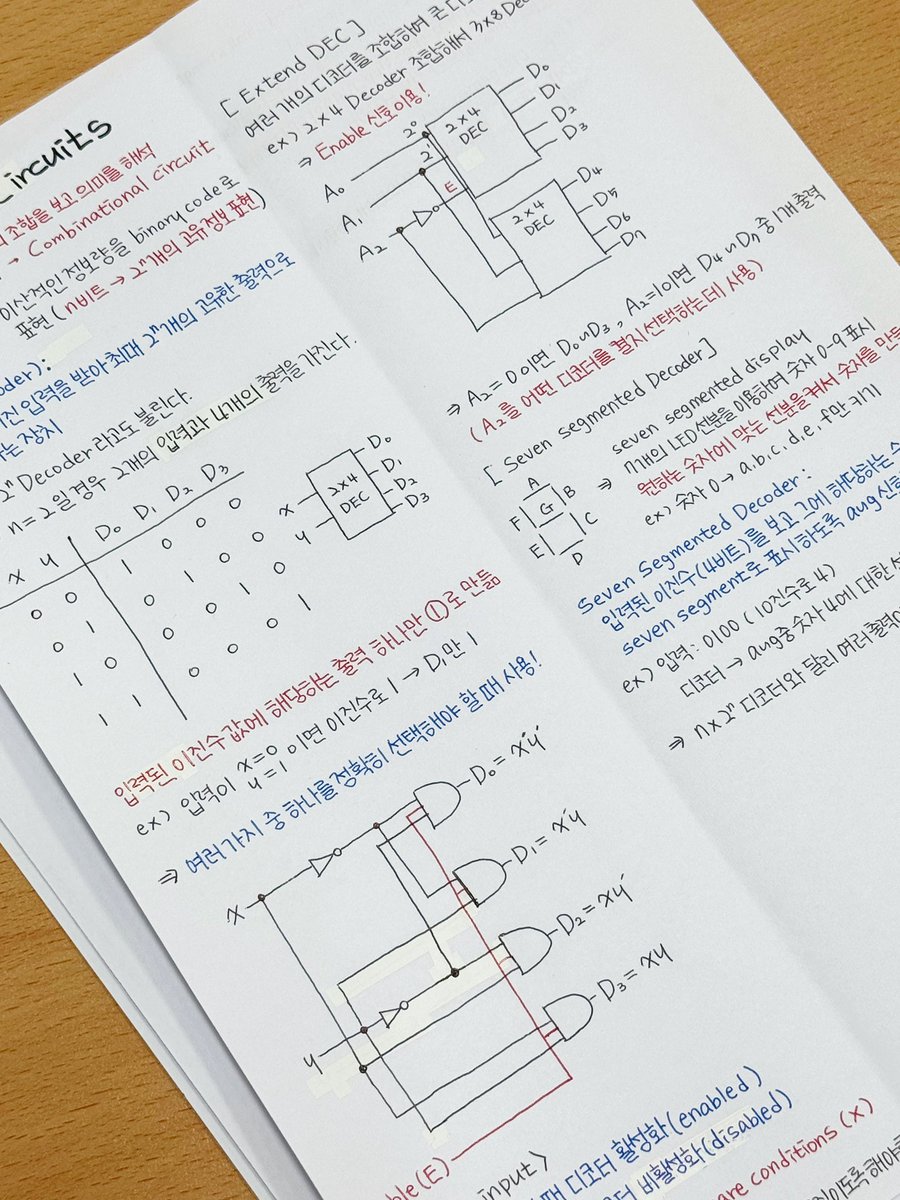 Circuits
조합을 보고 의미를 해석
→ Combinational circuit
이산적인 정보량을 binary code로
표현 (n비트 → 2ⁿ개의 고유정보 표현)
oder):
진 입력을 받아 최대 2ⁿ개의 고유한 출력으로
는 장치
2ⁿ Decoder 라고도 불린다.
n=2일 경우 2개의 입력과 4개의 출력을 가진다.
x y D₀ D₁ D₂ D₃
0 0 1 0 0 0
0 1 0 1 0 0
1 0 0 0 1 0
1 1 0 0 0 1
x
y
2×4
DEC
D₀
D₁
D₂
D₃
입력된 이진수 값에 해당하는 출력 하나만 ①로 만듦
ex) 입력이 x=0 y=1 이면 이진수로 1 → D₁만 1
⇒ 여러가지 중 하나를 정확히 선택해야 할 때 사용!
x
y
D₀ = x′y′
D₁ = x′y
D₂ = xy′
D₃ = xy
ble(E)
input>
때 디코더 활성화(enabled)
비활성화(disabled)
are conditions (x)
[Extend DEC]
여러 개의 디코더를 조합하여 큰
ex) 2×4 Decoder 조합해서 3×8 Dec
⇒ Enable 신호 이용!
A₀
A₁
A₂
2⁰
2¹
E
2×4
DEC
D₀
D₁
D₂
D₃
2×4
DEC
D₄
D₅
D₆
D₇
⇒ A₂=0이면 D₀~D₃, A₂=1이면 D₄~D₇ 중 1개 출력
(A₂를 어떤 디코더를 켤지 선택하는데 사용)
[Seven Segmented Decoder]
A
F G B
E C
D
⇒ seven segmented display
7개의 LED 선분을 이용하여 숫자 0-9 표시
원하는 숫자에 맞는 선분을 켜서 숫자를 만든
ex) 숫자 0 → a, b, c, d, e, f만 키기
Seven Segmented Decoder :
입력된 이진수(4비트)를 보고 그에 해당하는
seven segment로 표시하도록 a~g 신
ex) 입력: 0100 (10진수로 4)
디코더 → a~g 중 숫자 4에 대한
⇒ n×2ⁿ 디코더와 달리 여러 출력